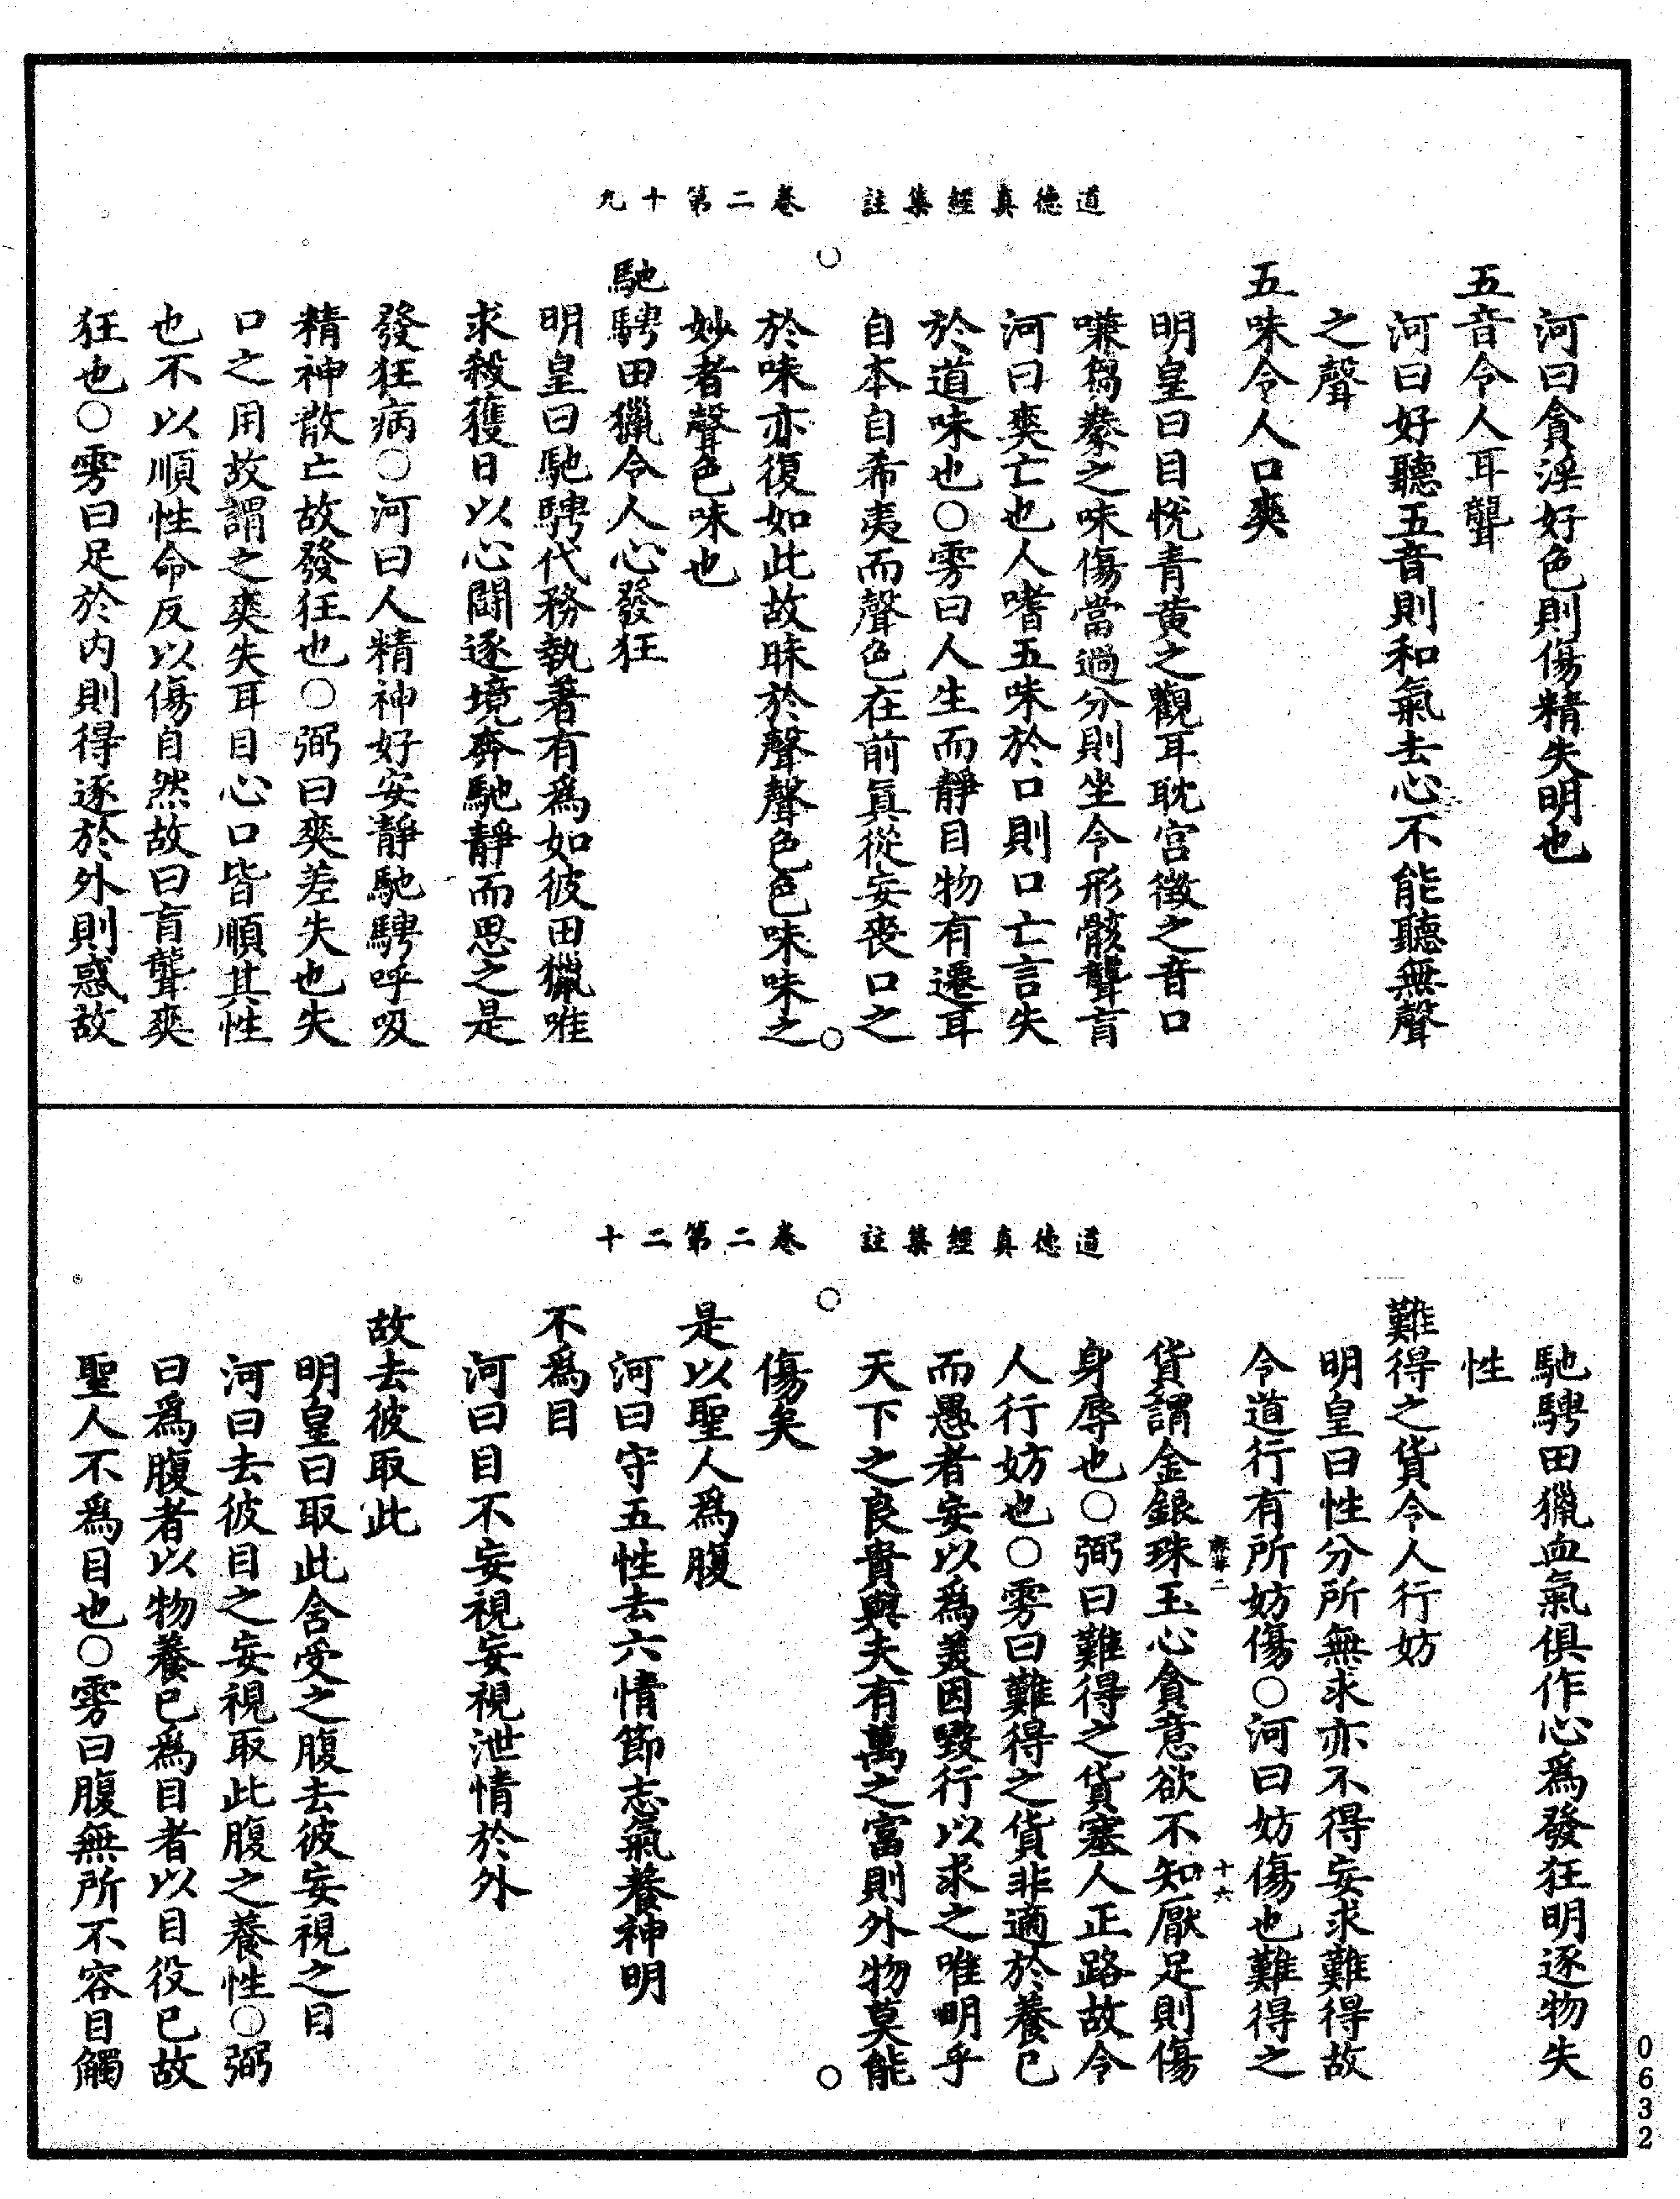 道德真經集註　卷二第十九
河曰貪淫好色則傷精失明也
五音令人耳聾
河曰好聽五音則和氣去心不能聽無聲
之聲
五味令人口爽
明皇曰目悅青黃之觀耳耽宮徵之音口
嗛芻豢之味傷當過分則坐令形骸聾盲
河曰爽亡也人嗜五味於口則口亡言失
於道味也○雱曰人生而靜目物有遷耳
自本自希夷而聲色在前真從妄喪口之
於味亦復如此故昧於聲聲色色味味之
妙者聲色味也
馳騁田獵令人心發狂
明皇曰馳騁代務執著有爲如彼田獵唯
求殺獲日以心鬬逐境奔馳靜而思之是
發狂病○河曰人精神好安靜馳騁呼吸
精神散亡故發狂也○弼曰爽差失也失
口之用故謂之爽失耳目心口皆順其性
也不以順性命反以傷自然故曰盲聾爽
狂也○雱曰足於内則得逐於外則惑故
道德真經集註　卷二第二十
馳騁田獵血氣俱作心爲發狂明逐物失
性
難得之貨令人行妨
明皇曰性分所無求亦不得妄求難得故
令道行有所妨傷○河曰妨傷也難得之
十六
貨謂金銀珠玉心貪意欲不知厭足則傷
身辱也○弼曰難得之貨塞人正路故令
人行妨也○雱曰難得之貨非適於養已
而愚者妄以爲美因毀行以求之唯明乎
天下之良貴與夫有萬之富則外物莫能
傷矣
是以聖人爲腹
河曰守五性去六情節志氣養神明
不爲目
河曰目不妄視妄視泄情於外
故去彼取此
明皇曰取此含受之腹去彼妄視之目
河曰去彼目之妄視取此腹之養性○弼
曰爲腹者以物養已爲目者以目役已故
聖人不爲目也○雱曰腹無所不容目觸
0632